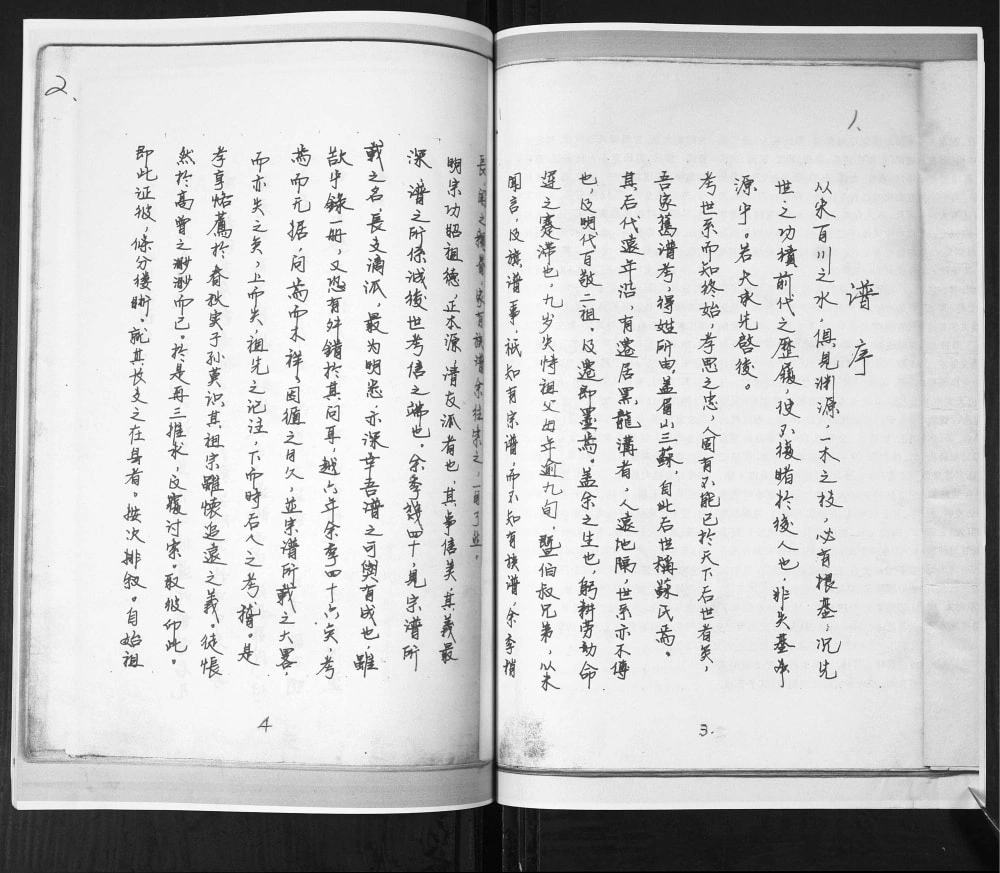 1、
谱序
从宋百川之水，俱见渊源，一木之枝，必有根基，况先
世之功積前代之歷履，使不復睹於後人也，非失基本
源乎。若大承先啓後。
考世系而知终始，孝思之忠，人固有不能已於天下后世者矣，
吾家舊谱考，得姓所由，盖眉山三蘇，自此后世稱蘇氏焉。
其后代遠年沿，有遷居黑龍溝者，人遠地隔，世系亦不傳
也，及明代百敬二祖，及遷即墨焉。盖余之生也，躬耕劳動命
運之蹇滞也，九岁失恃祖父母年逾九旬，暨伯叔兄弟，以未
聞言，及族谱事，祇知有宗谱，而不知有族谱，余季稍
3.
2、
長，聞之 家有族谱余往
明宗功昭祖德，正本源，清支派者也，其事信美，其義最
深，谱之所係诚後世考信之端也。余季幾四十，見宗谱所
載之名，長支滴派，最为明悉，亦深幸吾谱之可與有成也，雖
欲手錄一册，又恐有舛錯於其间耳，越六年余季四十六矣，考
焉而无据，问焉而不祥，因循之日久，並宗谱所載之大畧，
而亦失之矣，上而失，祖先之记注，下而時后人之考稽。是
孝享恪薦於春秋実子孙莫识其祖宗雖懷追遠之義。徒悵
然於高曾之渺渺而已。於是再三推求，反覆讨索。取彼印此。
即此证彼，條分楼晰。就其长支之在身者。按次排叙。自始祖
4